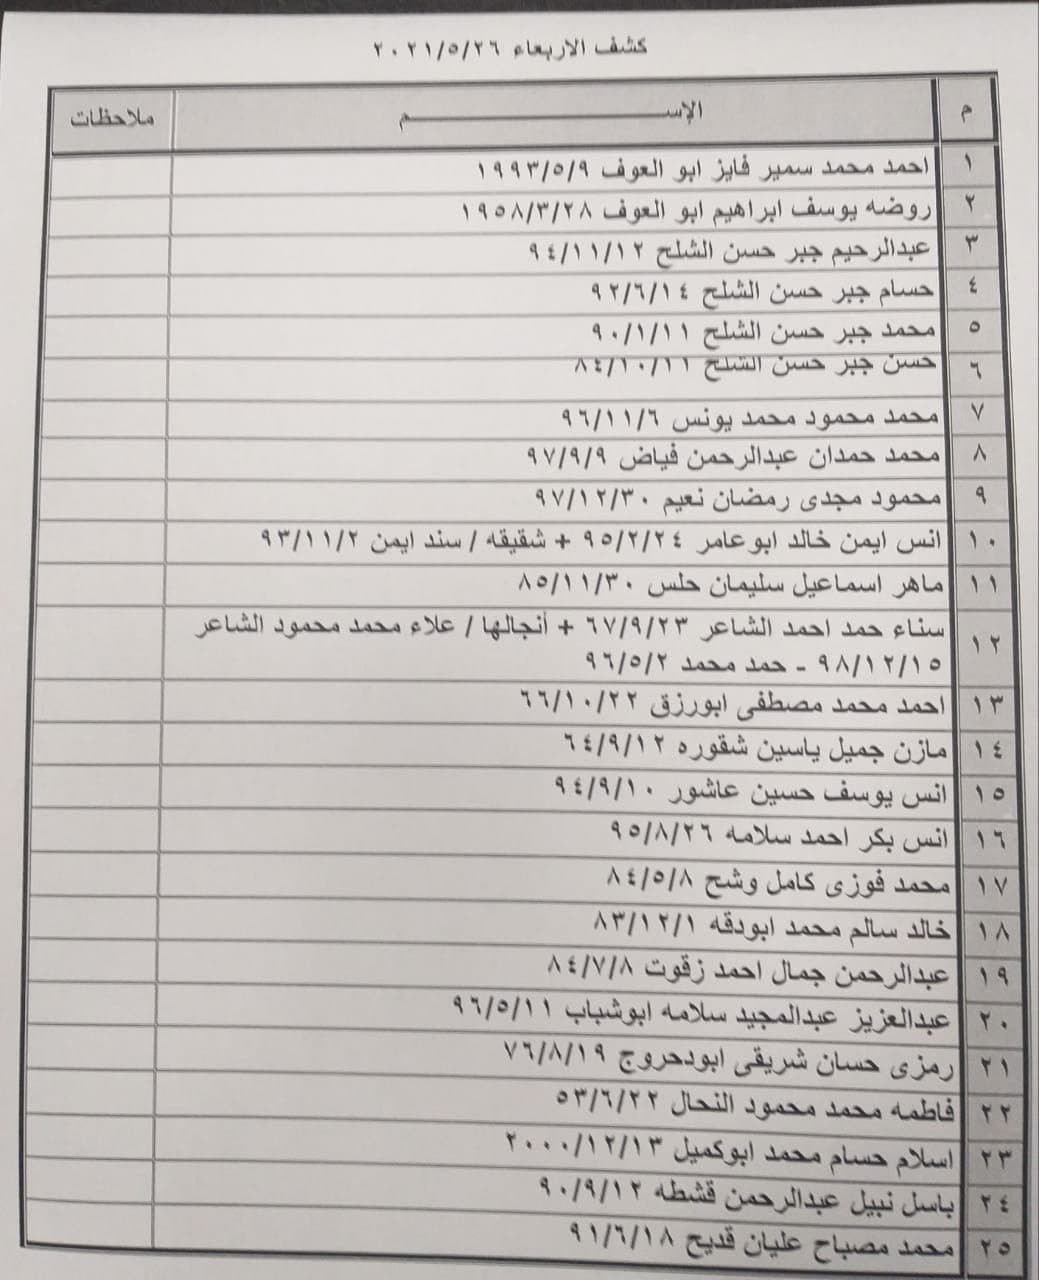 كشف الاربعاء ٢٠٢١/٥/٢٦
م الإســـــــــم ملاحظات
١ احمد محمد سمير فايز ابو العوف ١٩٩٣/٥/٩
٢ روضه يوسف ابراهيم ابو العوف ١٩٥٨/٣/٢٨
٣ عبدالرحيم جبر حسن الشلح ٩٤/١١/١٢
٤ حسام جبر حسن الشلح ٩٢/٦/١٤
٥ محمد جبر حسن الشلح ٩٠/١/١١
٦ حسن جبر حسن الشلح ٨٤/١٠/١١
٧ محمد محمود محمد يونس ٩٦/١١/٦
٨ محمد حمدان عبدالرحمن فياض ٩٧/٩/٩
٩ محمود مجدى رمضان نعيم ٩٧/١٢/٣٠
١٠ انس ايمن خالد ابوعامر ٩٥/٢/٢٤ + شقيقه / سند ايمن ٩٣/١١/٢
١١ ماهر اسماعيل سليمان حلس ٨٥/١١/٣٠
١٢ سناء حمد احمد الشاعر ٦٧/٩/٢٣ + أنجالها / علاء محمد محمود الشاعر
٩٨/١٢/١٥ - حمد محمد ٩٦/٥/٢
١٣ احمد محمد مصطفى ابورزق ٦٦/١٠/٢٢
١٤ مازن جميل ياسين شقوره ٦٤/٩/١٢
١٥ انس يوسف حسين عاشور ٩٤/٩/١٠
١٦ انس بكر احمد سلامه ٩٥/٨/٢٦
١٧ محمد فوزى كامل وشح ٨٤/٥/٨
١٨ خالد سالم محمد ابودقه ٨٣/١٢/١
١٩ عبدالرحمن جمال احمد زقوت ٨٤/٧/٨
٢٠ عبدالعزيز عبدالمجيد سلامه ابوشباب ٩٦/٥/١١
٢١ رمزى حسان شريقى ابودحروج ٧٦/٨/١٩
٢٢ فاطمه محمد محمود النحال ٥٣/٦/٢٢
٢٣ اسلام حسام محمد ابوكميل ٢٠٠٠/١٢/١٣
٢٤ باسل نبيل عبدالرحمن قشطه ٩٠/٩/١٢
٢٥ محمد مصباح عليان قديح ٩١/٦/١٨